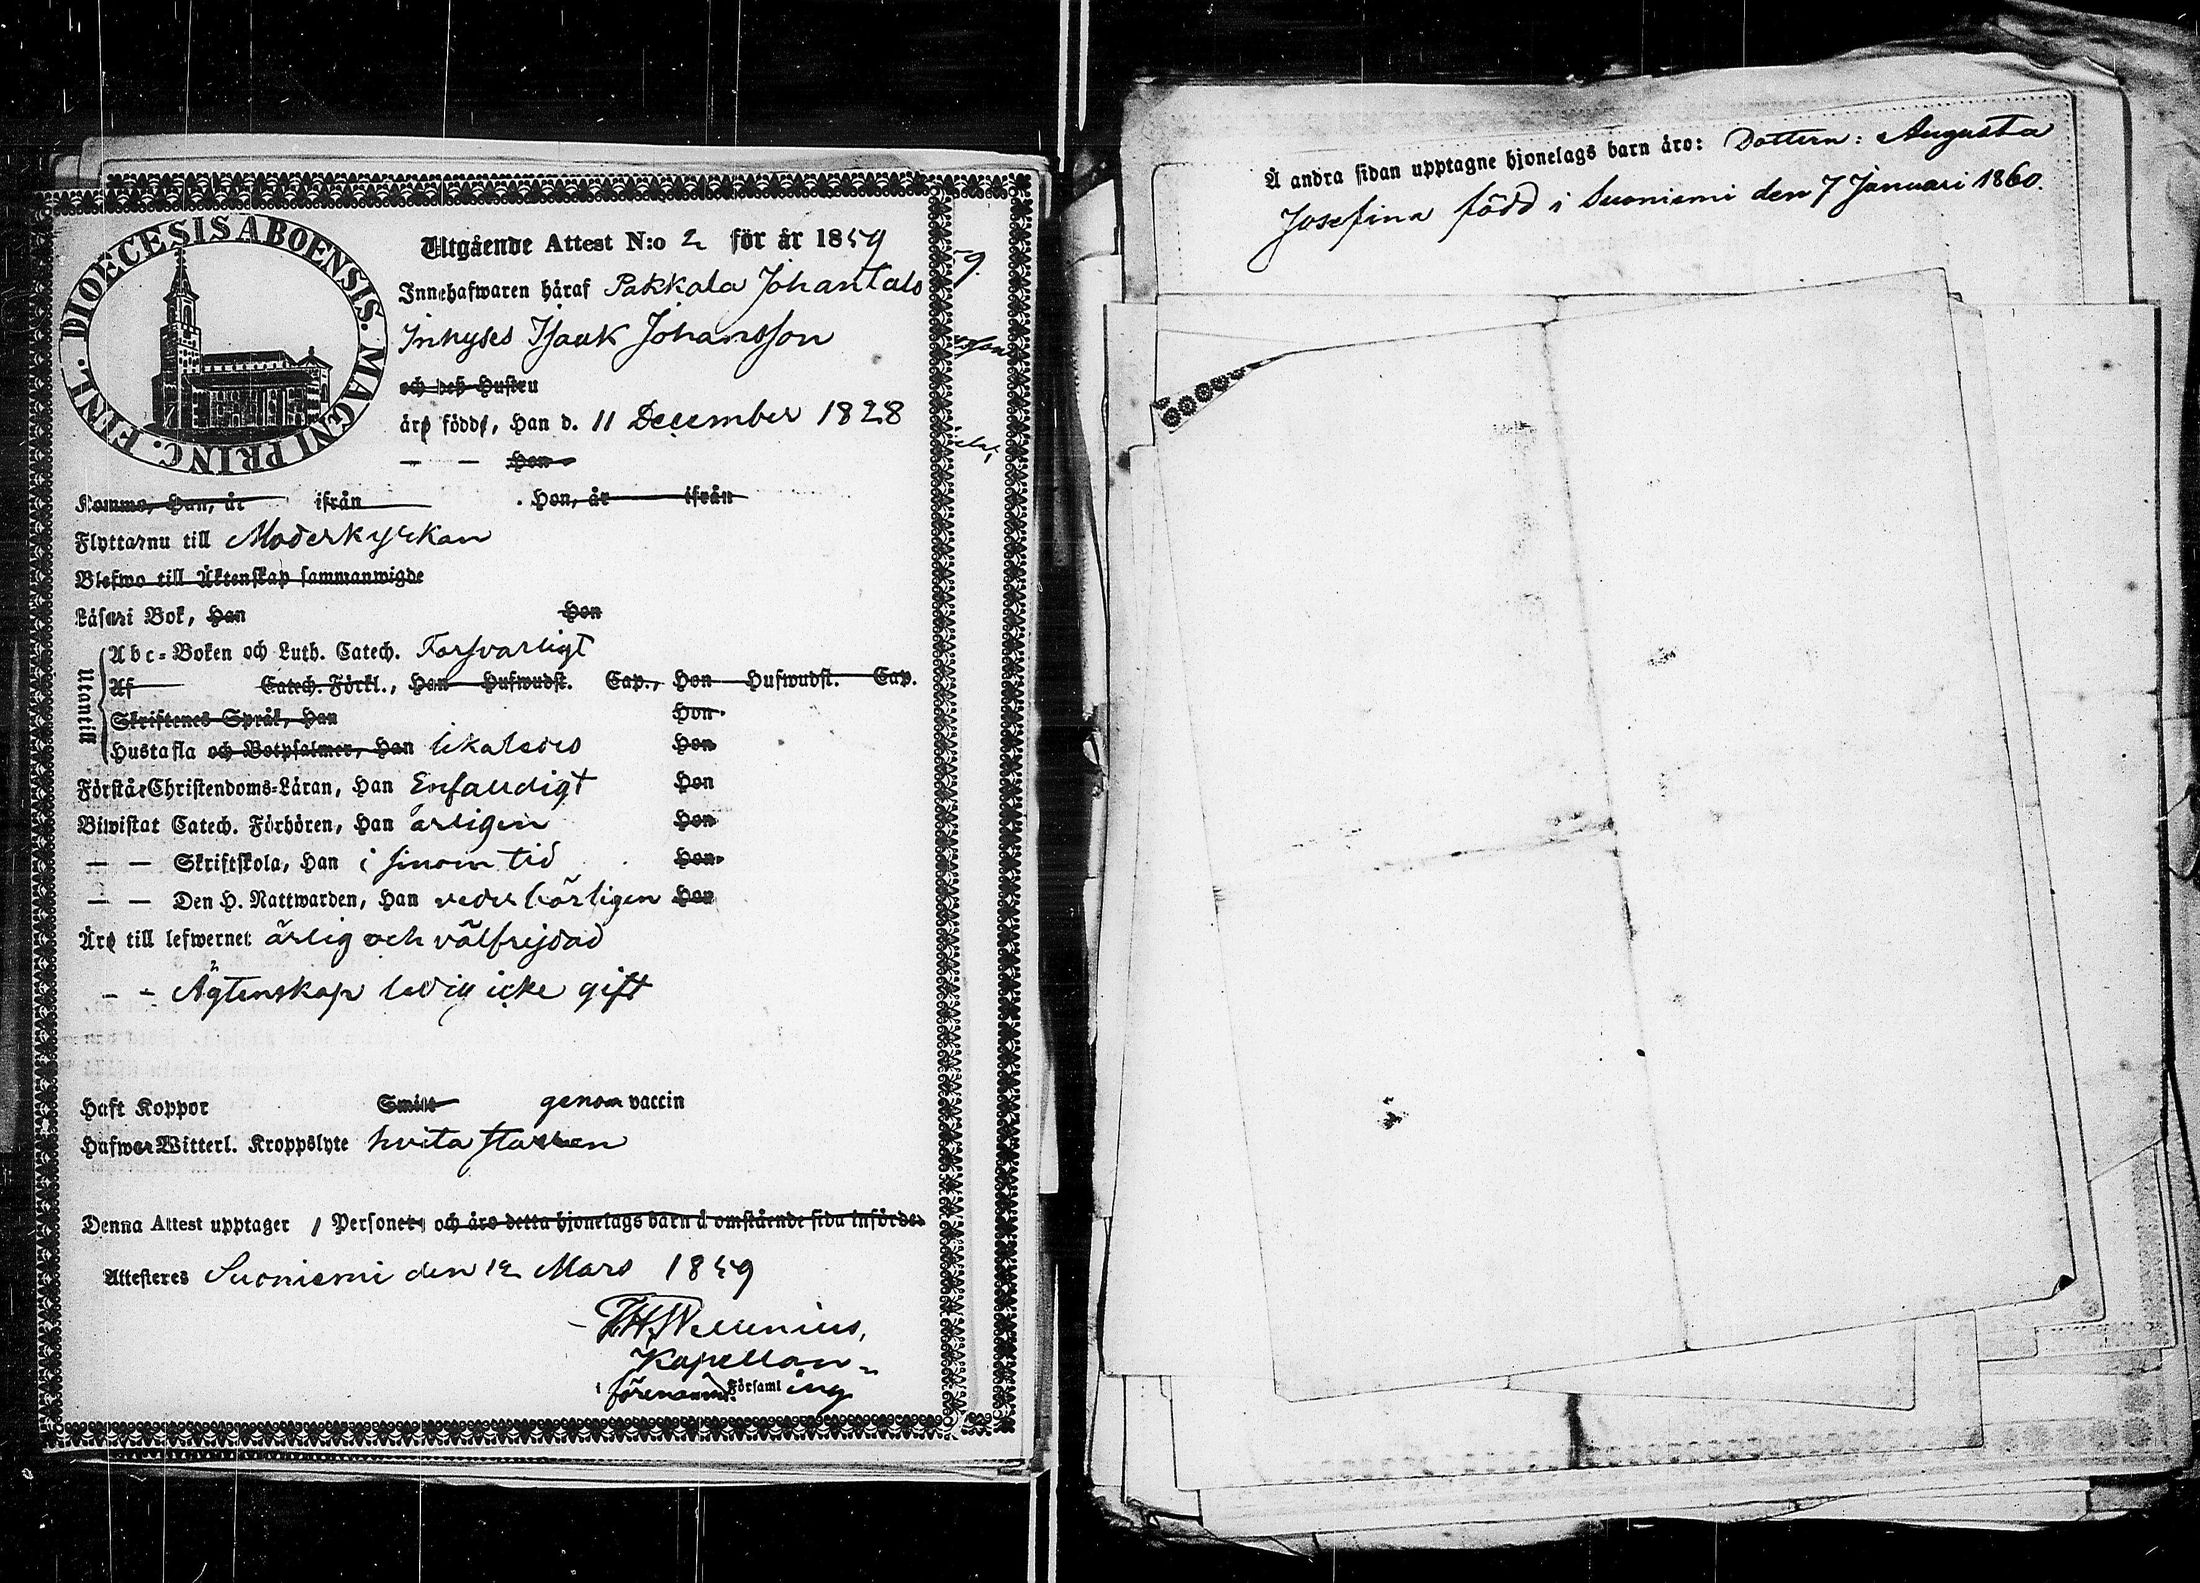 DIOECESIS ABOENSIS. MAGNI PRINC. FINL.
Utgående Attest N:o 2 för år 1859
Innehafwaren häraf Pakkala Johantals
Inhyses Isaak Johansson
och deß Hustru
äro födde, Han d. 11 December 1828
— — Hon
Komme, Han, år ifrån . Hon, år ifrån
Flyttarnu till Moderkyrkan
Blefwo till Äktenskap sammanwigde
Läsari Bok, Han Hon
Utantill
Abc-Boken och Luth. Catech. Försvarligt
Af Catech. Förkl., Han Hufwudst. Cap., Hon Hufwudst. Cap.
Skriftenes Språk, Han Hon
Hustafla och Botpsalmer, Han likaledes Hon
Förstår Christendoms-Läran, Han Enfaldigt Hon
Biwistat Catech. Förhören, Han årligen Hon
— — Skriftskola, Han i sinom tid Hon
— — Den H. Nattwarden, Han vederbörligen Hon
Äro till lefwernet ärlig och välfrejdad
– – Ägtenskap ledig icke gift
Haft Koppor Smitt genom vaccin
Hafwer Witterl. Kroppslyte hvita
Denna Attest upptager 1 Personer och äro detta hjonelags barn å omstående sida införde.
Attesteres Suoniemi den 12 Mars 1859
Kapellan
i förenämd. Församl ing
9.
Å andra sidan upptagne hjonelags barn äro: Dottern: Augusta
Josefina född i Suoniemi den 7 Januari 1860.